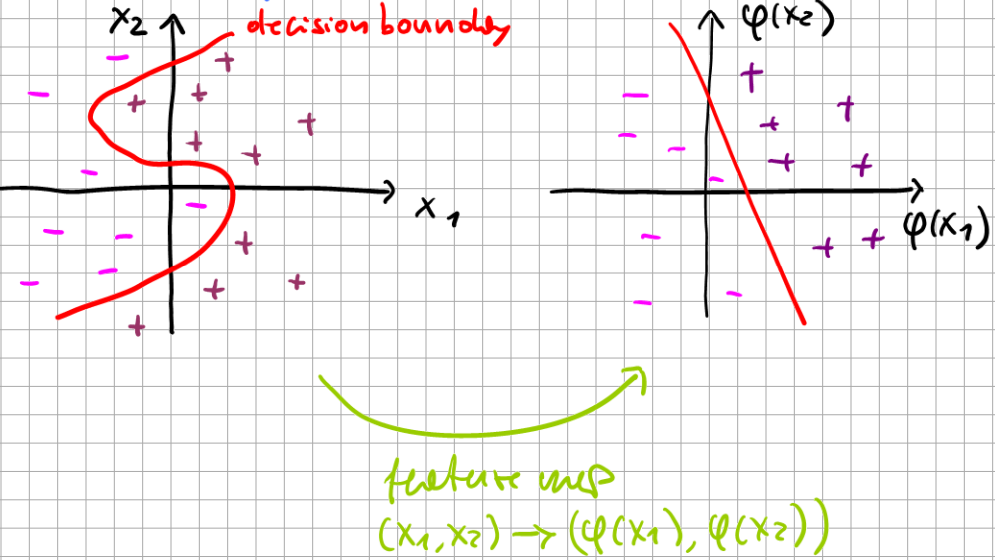 x₂
decision boundary
x₁
φ(x₂)
φ(x₁)
feature map
(x₁,x₂) → (φ(x₁), φ(x₂))